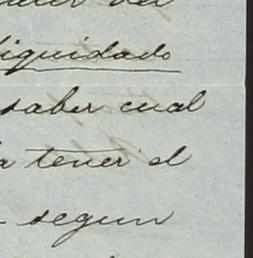 liquidado
saber cual
tener el
segun